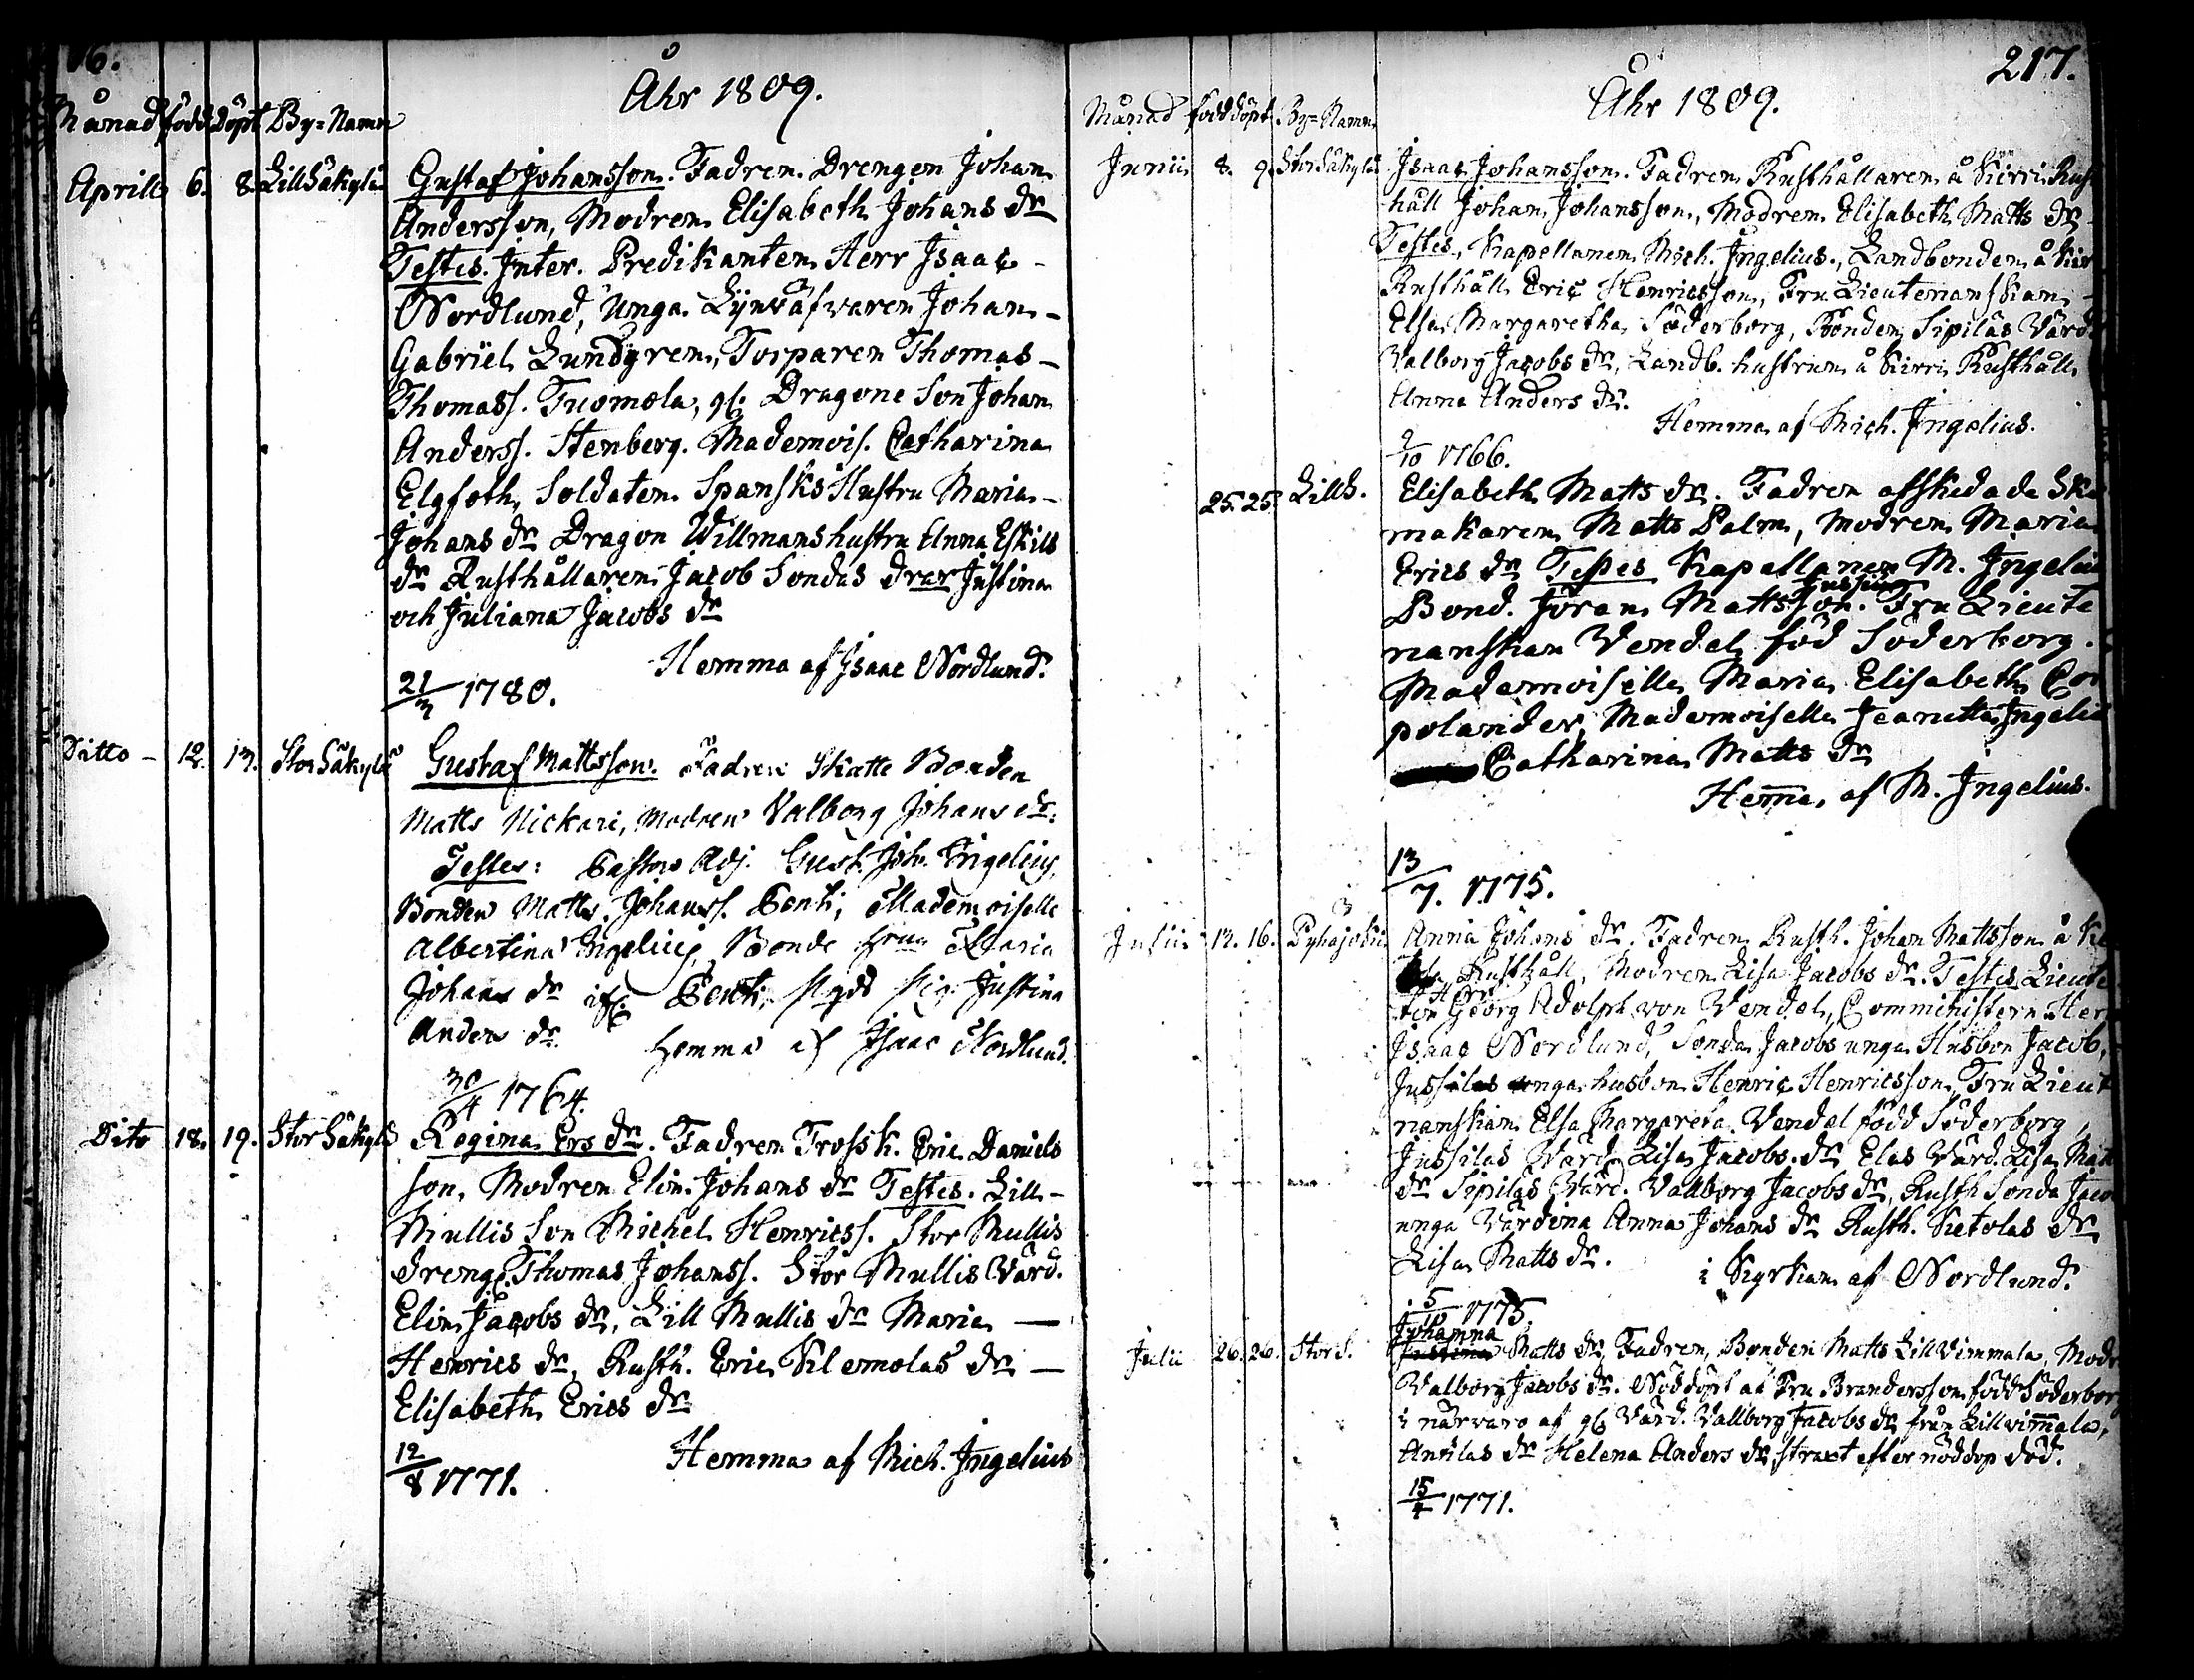 16.
Åhr 1809.
Månad född döpt By=Namn
Aprill 6. 8. LillSäkylä Gustaf Johansson. Fadren. Drengen Johan
Andersson, Modren Elisabeth Johans dr
Testes. Inter. Predikanten Herr Isaac
Nordlund, Unga Johan
Gabriel Lundgren, Torparen Thomas
Thomass. Tuomola, Dragone Son Johan
Anderss. Stenberg. Mademois. Catharina
Elgfoth, Soldaten Spansks Hustru Maria
Johans dr Dragon Willmans hustru Anna Eskils
dr Rusthållaren Jacob Sondas drar Justina
och Juliana Jacobs dr
Hemma af Isaac Nordlund.
21/3 1780.
Ditto - 12. 13. StorSäkylä Gustaf Mattsson. Fadren Skatte Bonden
Matts Nickari, Modren Valborg Johans dr.
Testes: Pastors Adj. Gust. Joh. Ingelius,
Bonden Matts Johanss. Penti, Mademoiselle
Albertina Ingelius, Bonde Maria
Johans dr Penti, Pig. Justina
Anders dr.
Hemma af Isaac Nordlund.
30/4 1764.
Dito 18. 19. StorSäkylä Regina Ers dr. Fadren Trossk. Eric Daniels
son, Modren Elin Johans dr Testes. Lill-
Mullis Son Michel Henricss. Stor Mullis
dreng. Thomas Johanss. Stor Mullis Värd.
Elin Jacobs dr, Lill Mullis dr Maria —
Henrics dr, Rusth. Eric Kilemolas dr —
Elisabeth Erics dr
Hemma af Mich. Ingelius
12/8 1771.
217.
Åhr 1809.
Månad född döpt By=Namn
Junii 8. 9. StorSäkylä Isaac Johansson. Fadren Rusthållaren å Kirri Rus
håll Johan Johansson, Modren Elisabeth Matts dr
Testes, Kapellanen Mich. Ingelius, Landbonden å Kir
Rusthåll Eric Henricsson, Fru Lieutenanskan
Elsa Margaretha Söderborg, Bonden Sipiläs Värd
Valborg Jacobs dr, Landb. hustrun å Kirri Rusthåll
Anna Anders dr.
Hemma af Mich. Ingelius.
2/10 1766.
25. 25. LillS. Elisabeth Matts dr. Fadren afskedade Sko
makaren Matts Palm, Modren Maria
Erics dr Testes Kapellanen M. Ingelius
Bond. Jöran Mattsson. Jussila Fru Lieute
nanskan Vendel född Söderborg.
Mademoiselle Maria Elisabeth Co
polander, Mademoiselle Jeanetta Ingelius
Catharina Matts dr
Hem̅a af M. Ingelius.
13/7. 1775.
Julii 12. 16. Pyhäjoki Anna Johans dr. Fadren Rusth. Johan Mattsson å Ke
la Rusthåll, Modren Lisa Jacobs dr. Testes Lieute
Herr Georg Adolph von Vendel, Comministern Her
Isaac Nordlund, Sonda Jacobs unga Husbon Jacob,
Jussilas unga husbon Henric Henricsson, Fru Lieut
nanskan Elsa Margareta Vendel född Söderborg,
Jussilas Värd. Lisa Jacobs dr, Elas Värd. Lisa Mat
dr Sipiläs Värd. Vallborg Jacobs dr, Rusth Sonda Jaco
unga Värdina Anna Johans dr Rusth. Ketolas dr
Lisa Matts dr.
i Kyrkan af Nordlund.
5/10 1775.
Johanna
Julii 26. 26. StorS. Justina Matts dr, Fadren, Bonden Matts Lill Vimmala, Modr
Valborg Jacobs dr. Nöddöpt af Fru Brandersson född Söderbor
i närvaro af Värd. Vallborg Jacobs dr från Lillvim̅ala,
Anttilas dr Helena Anders dr, straxt efter nöddop död.
15/4 1771.